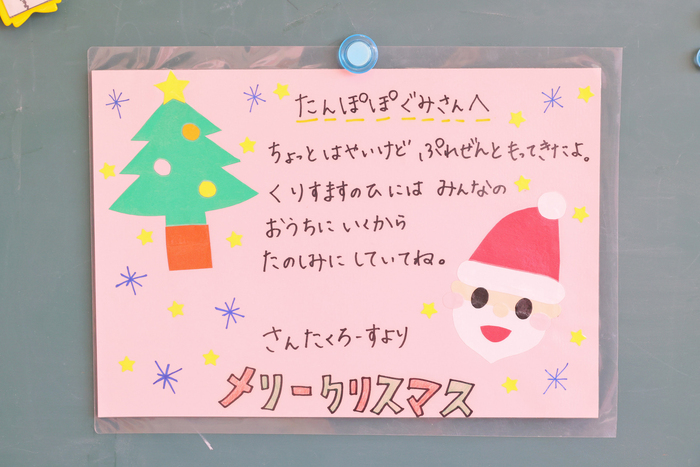 たんぽぽぐみさんへ
ちょっとはやいけど ぷれぜんともってきたよ。
くりすますのひには みんなの
おうちに いくから
たのしみに していてね。
さんたくろーすより
メリークリスマス